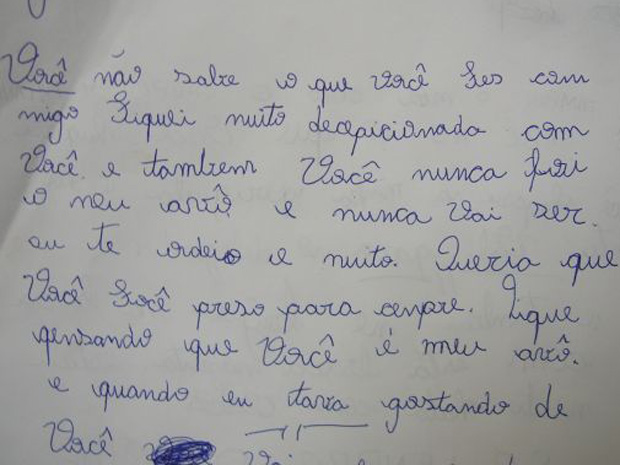 Você não sabe o que você fes com
migo Fiquei muito decepicionada com
Você. e tambem Você nunca foi
o meu avô. e nunca vai ser.
eu te odeio e muito. Queria que
Você focê preso para cenpre. Fique
pensando que Você é meu avô.
e quando eu tava gostando de
Você